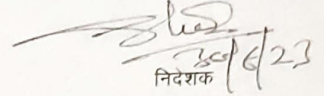 30/6/23
निदेशक